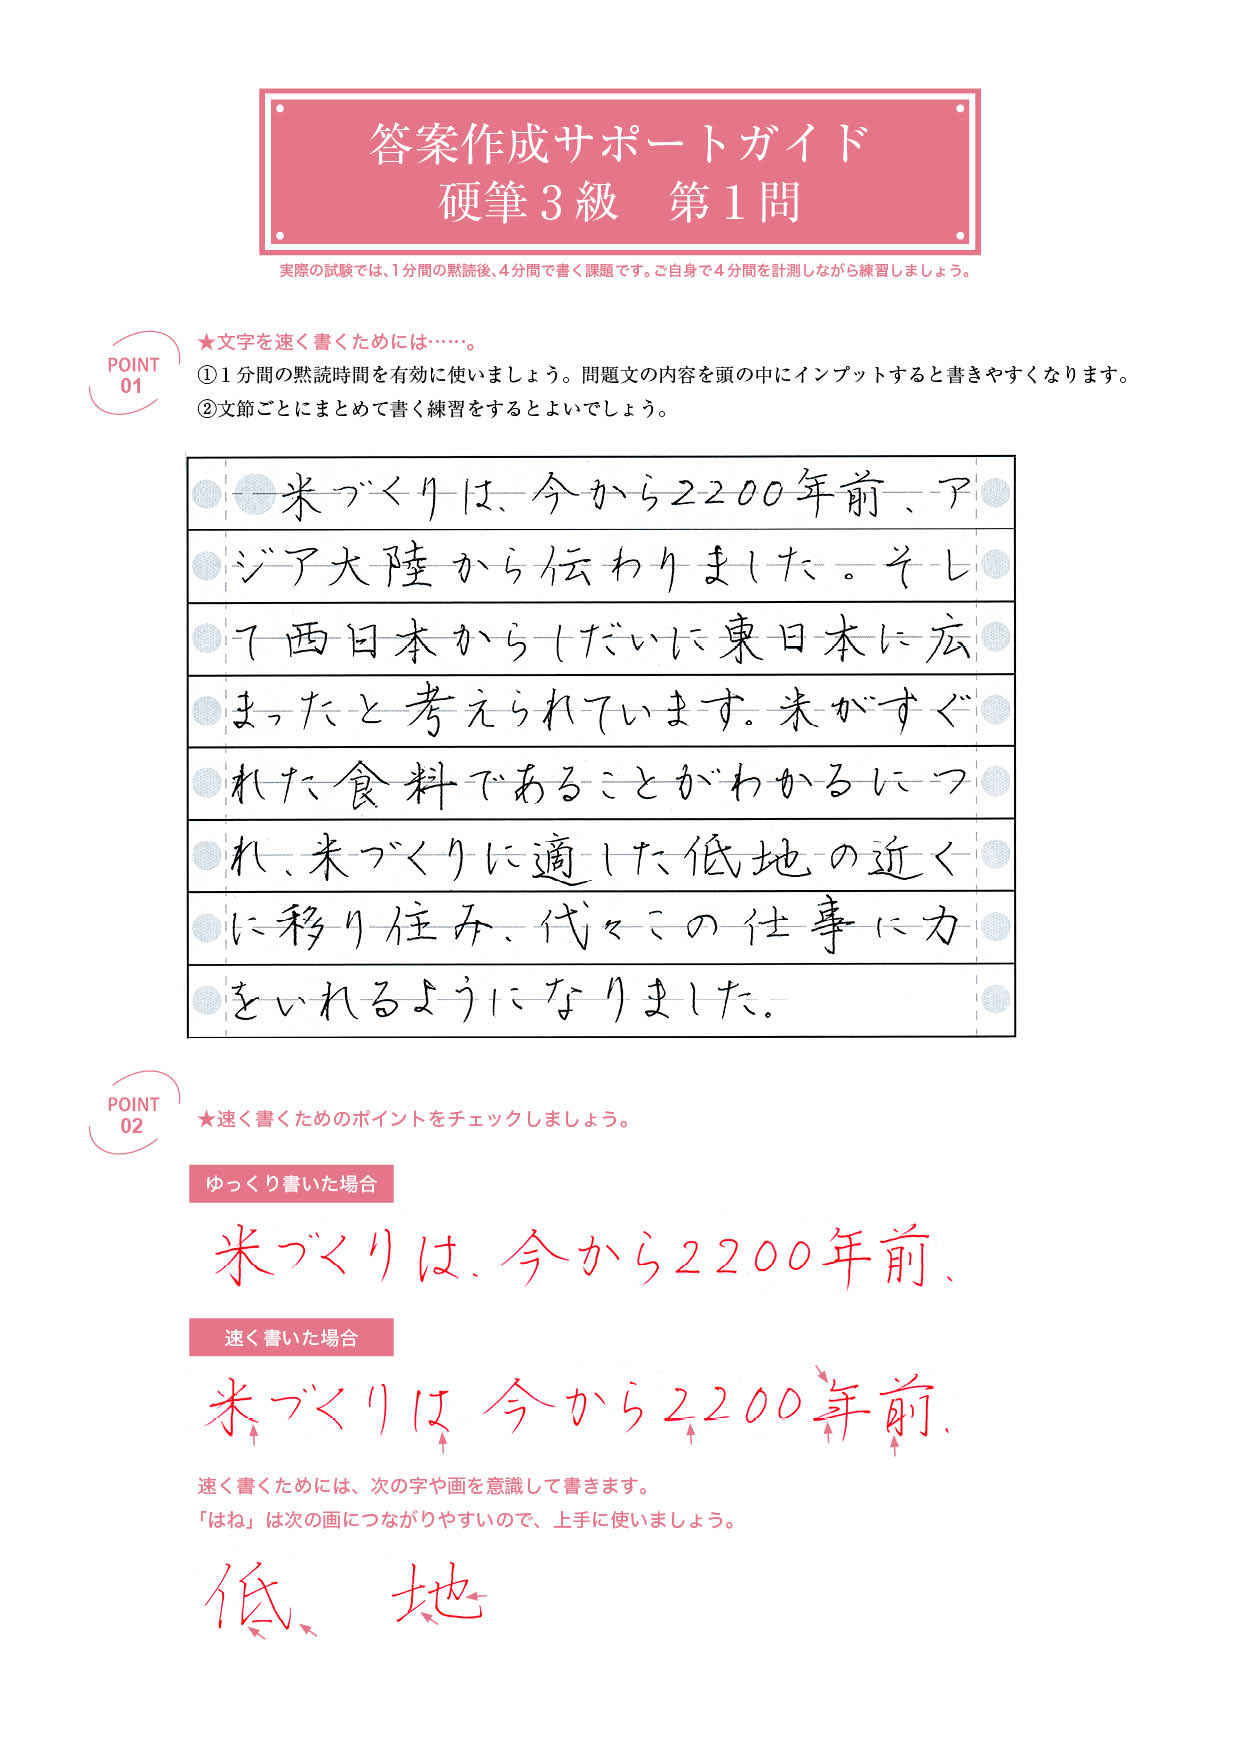 答案作成サポートガイド
硬筆3級　第1問
実際の試験では、1分間の黙読後、4分間で書く課題です。ご自身で4分間を計測しながら練習しましょう。
POINT
01
★文字を速く書くためには……。
①1分間の黙読時間を有効に使いましょう。問題文の内容を頭の中にインプットすると書きやすくなります。
②文節ごとにまとめて書く練習をするとよいでしょう。
米づくりは、今から2200年前、ア
ジア大陸から伝わりました。そし
て西日本からしだいに東日本に広
まったと考えられています。米がすぐ
れた食料であることがわかるにつ
れ、米づくりに適した低地の近く
に移り住み、代々この仕事に力
をいれるようになりました。
POINT
02
★速く書くためのポイントをチェックしましょう。
ゆっくり書いた場合
米づくりは、今から2200年前、
速く書いた場合
米づくりは 今から2200年前、
速く書くためには、次の字や画を意識して書きます。
「はね」は次の画につながりやすいので、上手に使いましょう。
低、　地